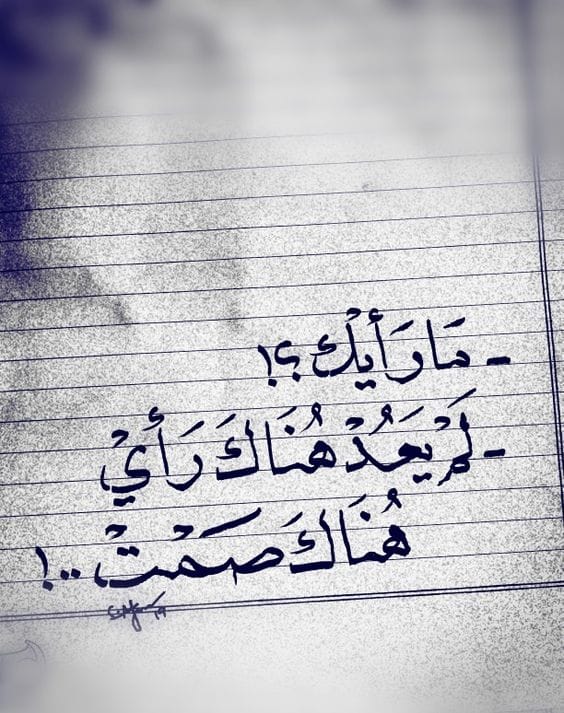 - مَا رَأيْك ؟!
- لَمْ يَعُدْ هُنَاكَ رَأيْ
هُنَاكَ صَمْتْ ..!